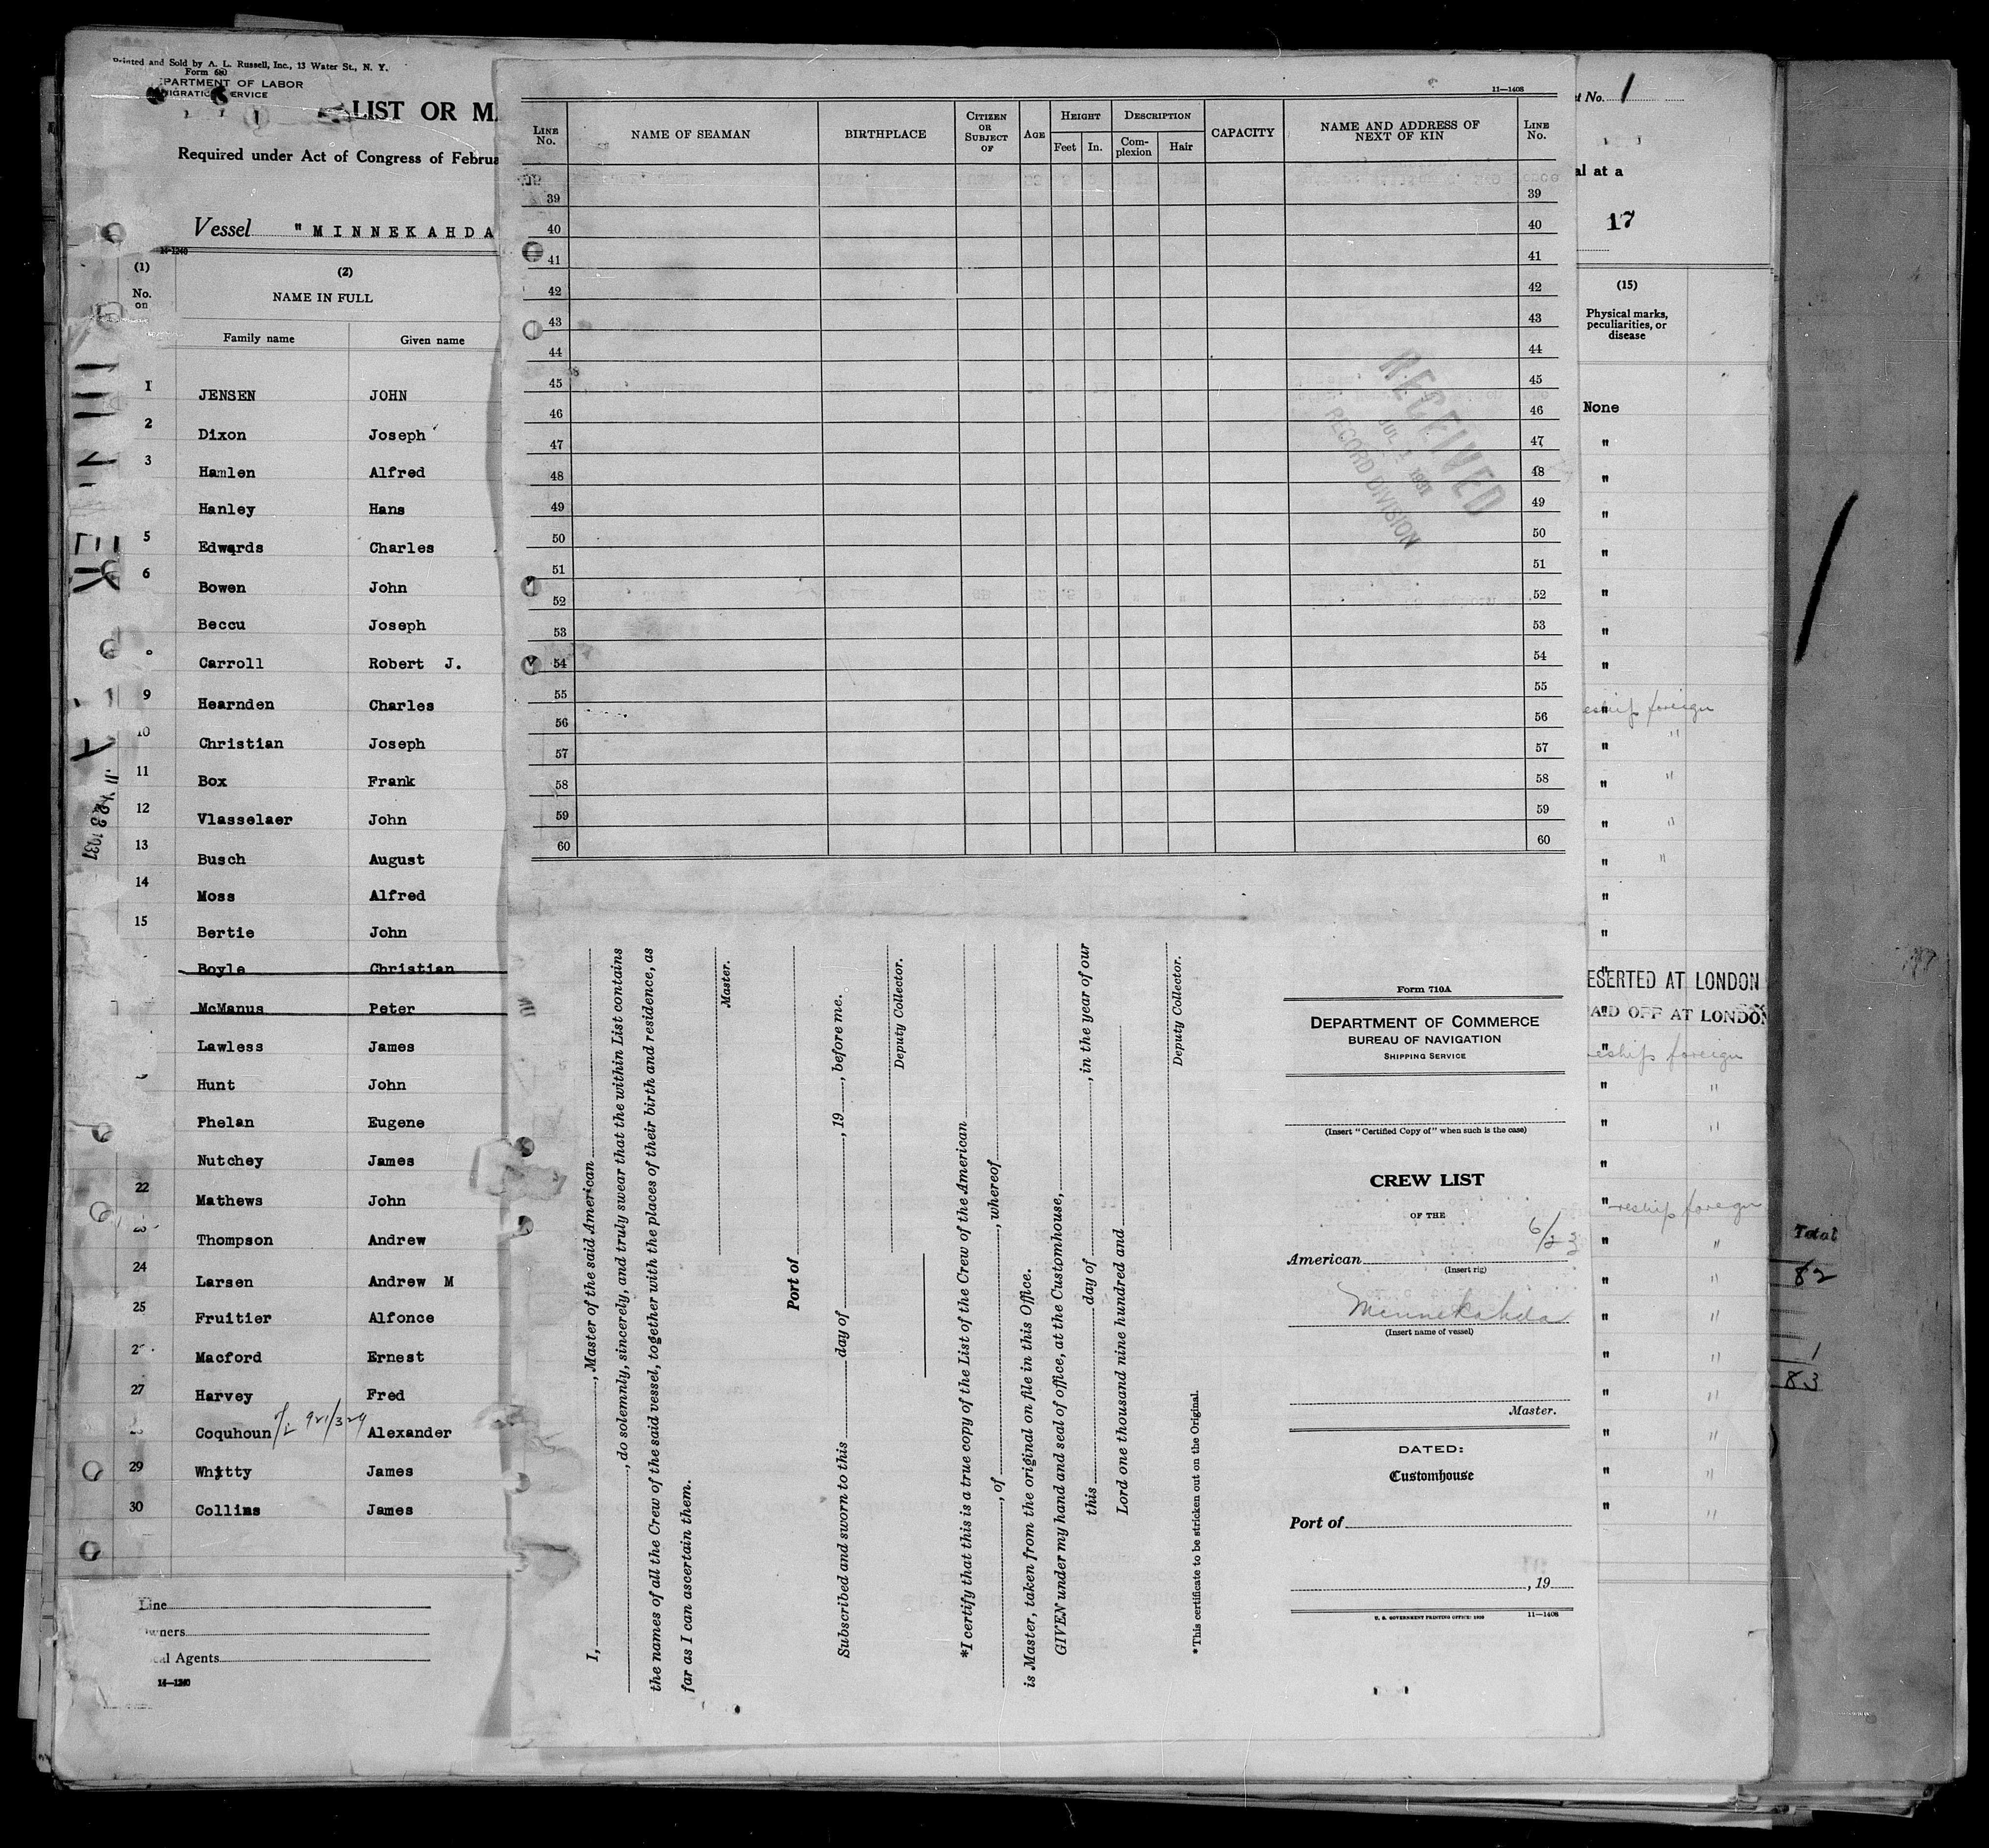 Printed and Sold by A. L. Russell, Inc., 13 Water St., N. Y.
Form 680
PARTMENT OF LABOR
MIGRATION SERVICE
LIST OR MA
Required under Act of Congress of Februa
Vessel "MINNEKAHDA
14-1240
(1)
No.
on
(2)
NAME IN FULL
Family name Given name
1 JENSEN JOHN
2 Dixon Joseph
3 Hamlen Alfred
Hanley Hans
5 Edwards Charles
6 Bowen John
Beccu Joseph
Carroll Robert J.
9 Hearnden Charles
10 Christian Joseph
11 Box Frank
12 Vlasselaer John
13 Busch August
14 Moss Alfred
15 Bertie John
Boyle Christian
McManus Peter
Lawless James
Hunt John
Phelan Eugene
Nutchey James
22 Mathews John
Thompson Andrew
24 Larsen Andrew M
25 Fruitier Alfonce
Macford Ernest
27 Harvey Fred
Coquhoun 921/329 Alexander
29 Whitty James
30 Collins James
Line
wners
cal Agents
14-1240
11—1408
LINE No.
NAME OF SEAMAN
BIRTHPLACE
CITIZEN OR SUBJECT OF
AGE
HEIGHT
Feet In.
DESCRIPTION
Complexion Hair
CAPACITY
NAME AND ADDRESS OF NEXT OF KIN
LINE No.
39 39
40 40
41 41
42 42
43 43
44 44
45 45
46 46
47 47
48 48
49 49
50 50
51 51
52 52
53 53
54 54
55 55
56 56
57 57
58 58
59 59
60 60
RECEIVED
JUL 1 1931
RECORD DIVISION
I, , Master of the said American
, do solemnly, sincerely, and truly swear that the within List contains
the names of all the Crew of the said vessel, together with the places of their birth and residence, as
far as I can ascertain them.
Master.
Port of
Subscribed and sworn to this day of , 19 , before me.
Deputy Collector.
*I certify that this is a true copy of the List of the Crew of the American
, of , whereof
is Master, taken from the original on file in this Office.
GIVEN under my hand and seal of office, at the Customhouse,
this day of , in the year of our
Lord one thousand nine hundred and
Deputy Collector.
*This certificate to be stricken out on the Original.
Form 710A
DEPARTMENT OF COMMERCE
BUREAU OF NAVIGATION
SHIPPING SERVICE
(Insert "Certified Copy of" when such is the case)
CREW LIST
OF THE
6/23
American
(Insert rig)
Minnekahda
(Insert name of vessel)
Master.
DATED:
Customhouse
Port of
, 19
U. S. GOVERNMENT PRINTING OFFICE: 1930 11—1408
t No. 1
al at a
17
(15)
Physical marks, peculiarities, or disease
None
"
"
"
"
"
"
"
" eship foreign
" "
" "
" "
" "
"
"
" ESERTED AT LONDON
" AID OFF AT LONDON
" eship foreign
" "
" "
"
" reship foreign
" "
" "
" "
" "
" "
" "
" "
" "
Total
82
1
83